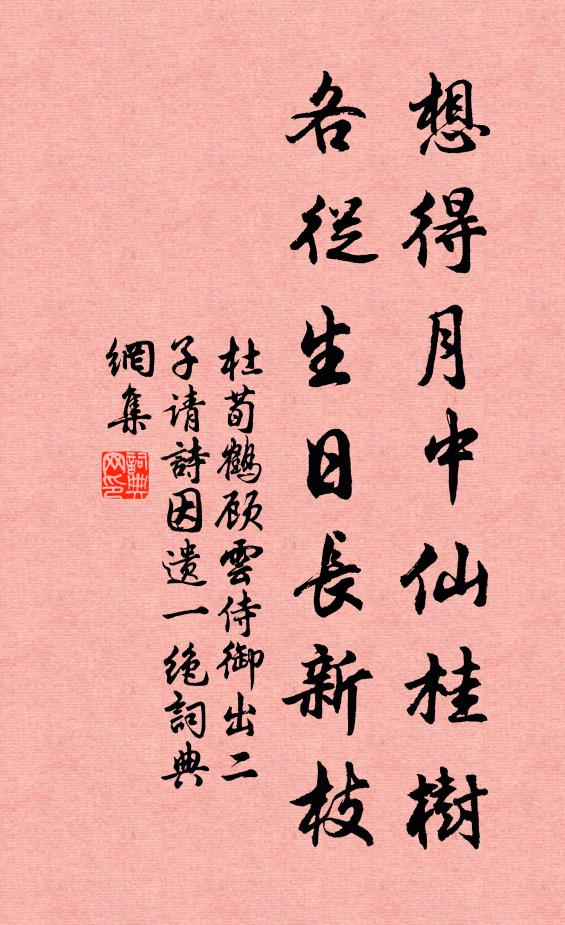 想得月中仙桂樹
各從生日長新枝
杜荀鶴顾雲侍御出二
子请詩因遺一绝詞典
網集
詞典
网印